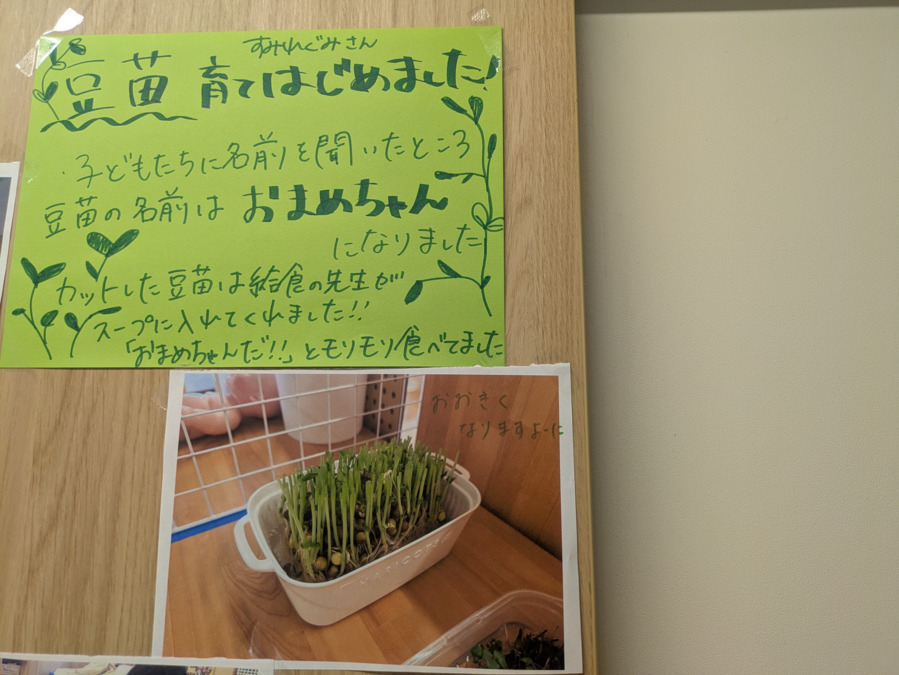 すみれぐみさん
豆苗 育てはじめました!
・子どもたちに名前を聞いたところ
豆苗の名前は おまめちゃん
になりました
カットした豆苗は給食の先生が
スープに入れてくれました!!
「おまめちゃんだ!!」とモリモリ食べてました
おおきく
なりますよーに